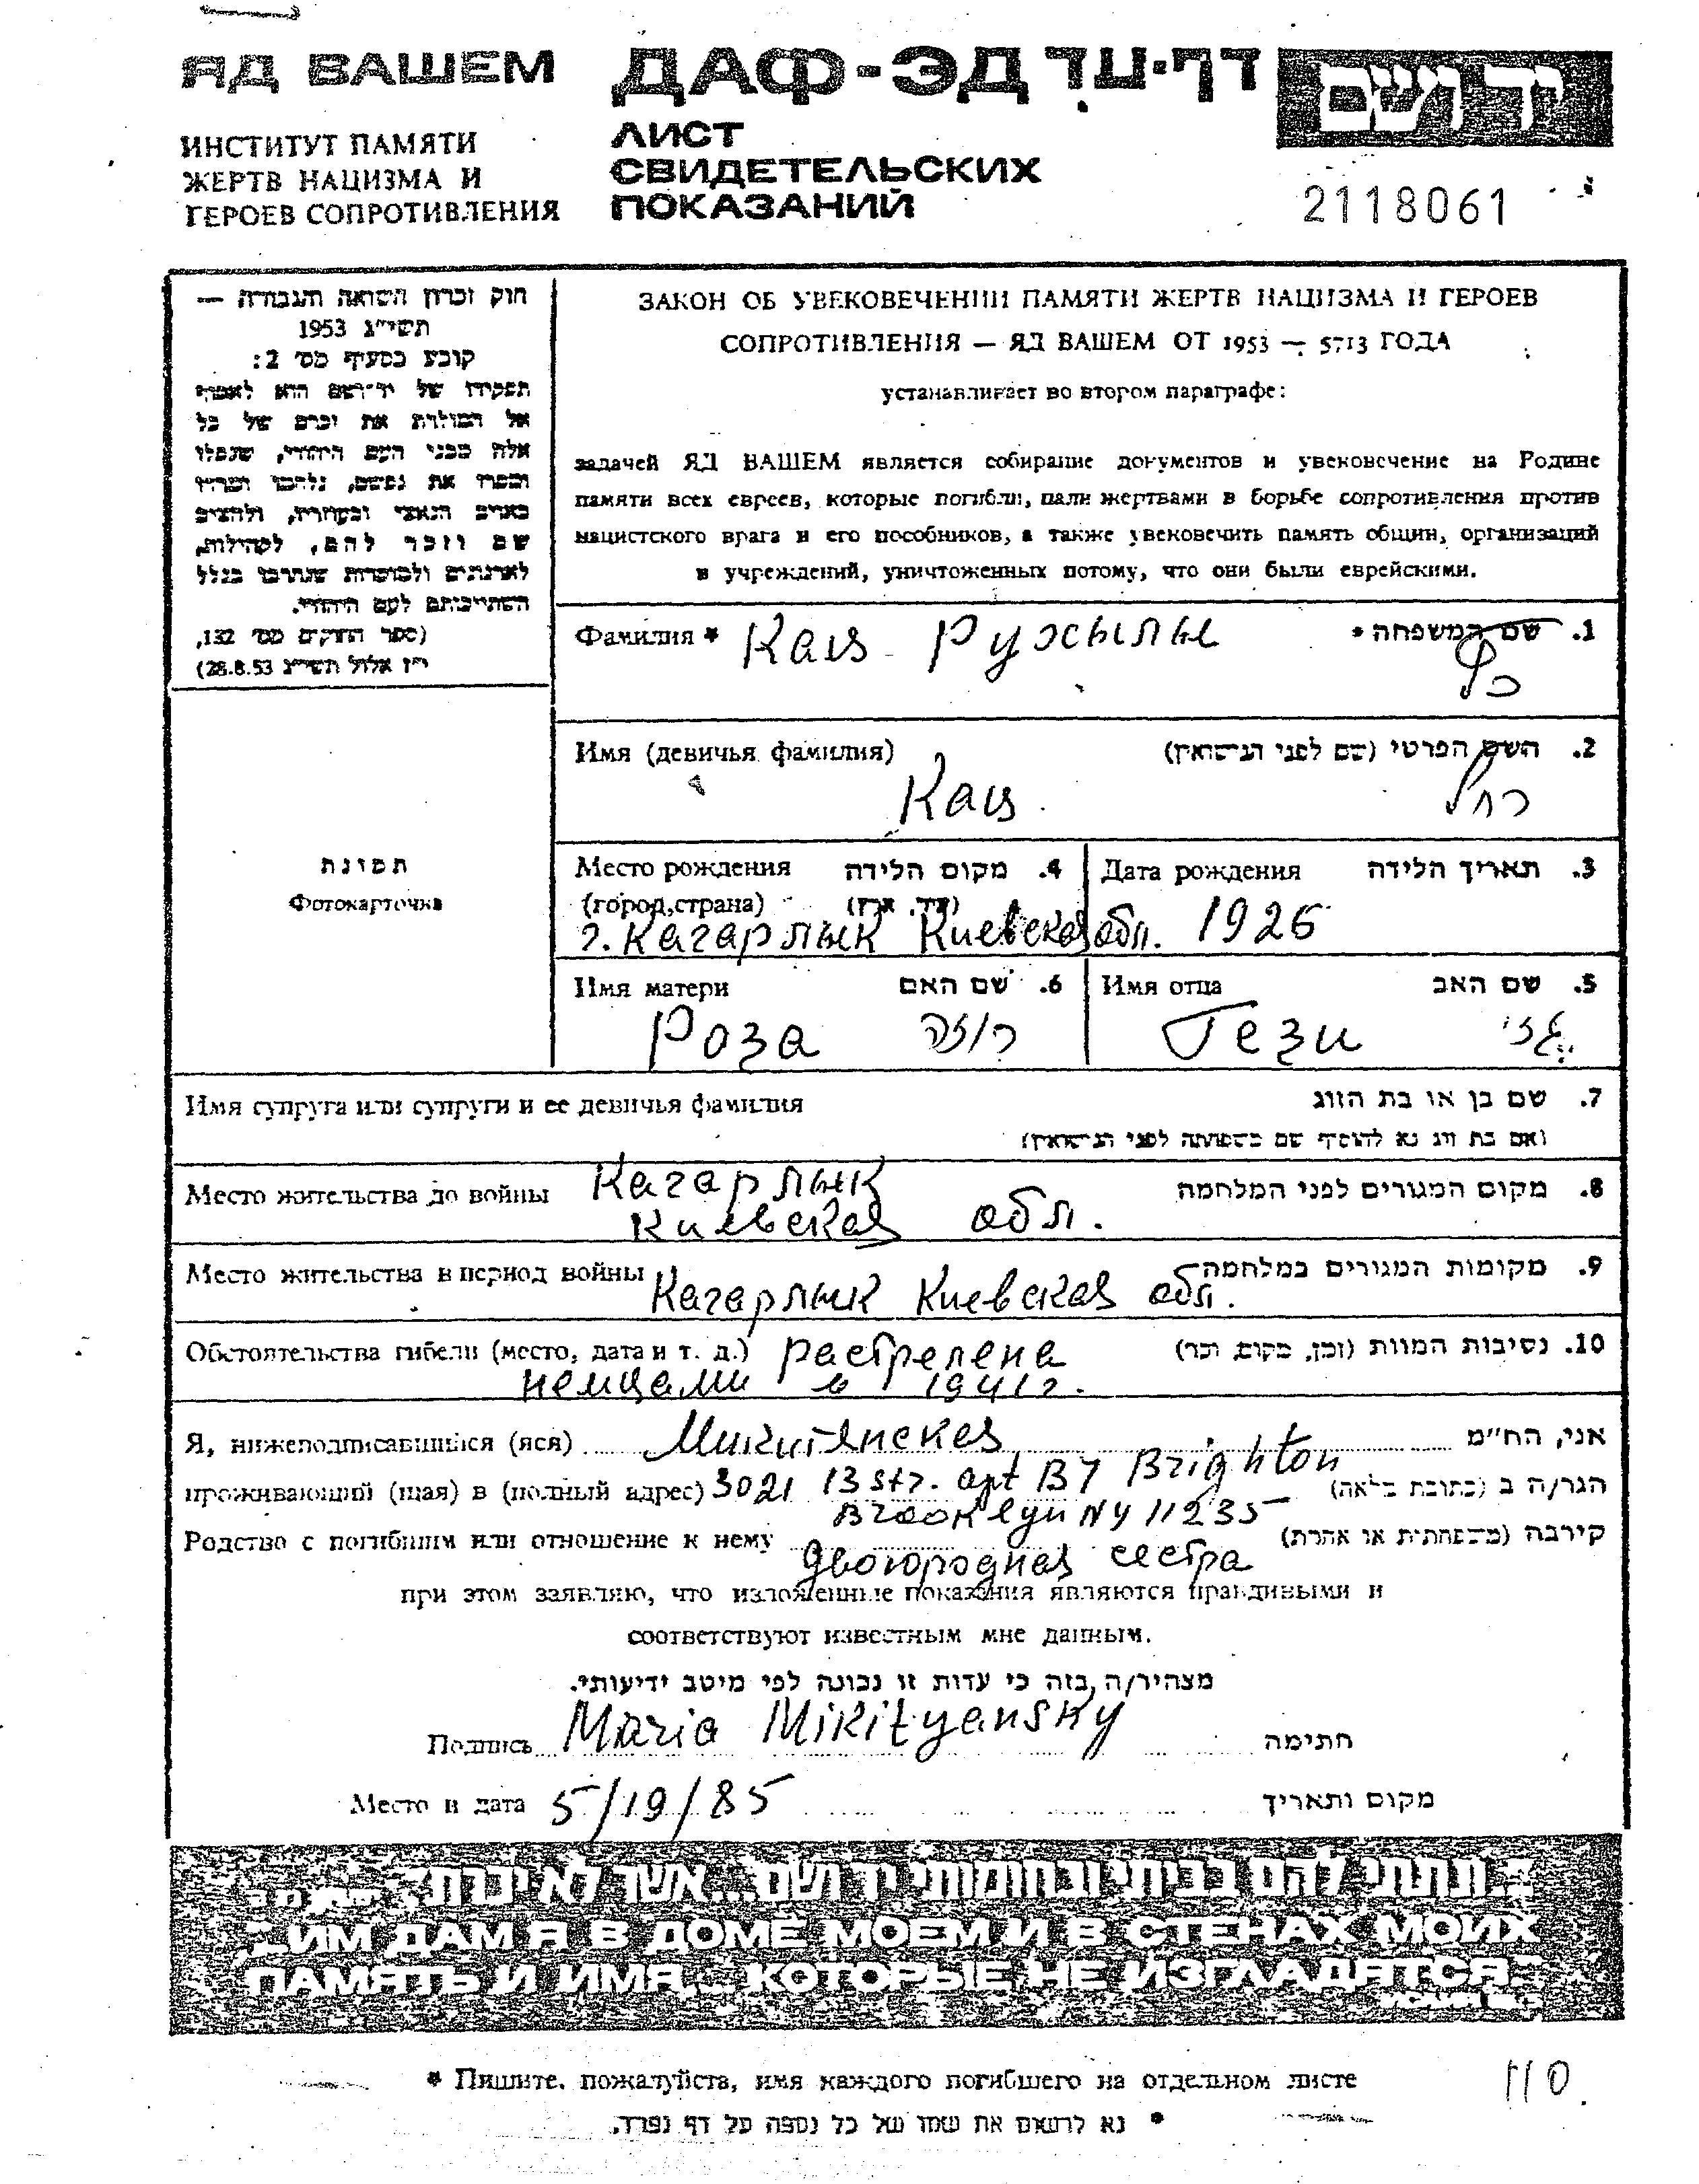 ЯД ВАШЕМ
ДАФ-ЭД דף-עד
יד ושם
ИНСТИТУТ ПАМЯТИ
ЖЕРТВ НАЦИЗМА И
ГЕРОЕВ СОПРОТИВЛЕНИЯ
ЛИСТ
СВИДЕТЕЛЬСКИХ
ПОКАЗАНИЙ
2118061
חוק זכרון השואה והגבורה —
תשי״ג 1953
קובע בסעיף מס׳ 2:
תפקידו של יד־ושם הוא לאסוף
אל המולדת את זכרם של כל
אלה מבני העם היהודי, שנפלו
ומסרו את נפשם, נלחמו ומרדו
באויב הנאצי ובעוזריו, ולהציב
שם וזכר להם, לקהילות,
לארגונים ולמוסדות שנחרבו בגלל
השתייכותם לעם היהודי.
(ספר החוקים מס׳ 132,
י״ז אלול תשי״ג 28.8.53)
ЗАКОН ОБ УВЕКОВЕЧЕНИИ ПАМЯТИ ЖЕРТВ НАЦИЗМА И ГЕРОЕВ
СОПРОТИВЛЕНИЯ — ЯД ВАШЕМ ОТ 1953 — 5713 ГОДА
устанавливает во втором параграфе:
задачей ЯД ВАШЕМ является собирание документов и увековечение на Родине
памяти всех евреев, которые погибли, пали жертвами в борьбе сопротивления против
нацистского врага и его пособников, а также увековечить память общин, организаций
и учреждений, уничтоженных потому, что они были еврейскими.
Фамилия * Кац Ружылы 1. שם המשפחה *
כץ
Имя (девичья фамилия) 2. השם הפרטי (שם לפני הנישואין)
Кац רחל
תמונת
Фотокарточка
Место рождения 4. מקום הלידה
(город,страна) (עיר, ארץ)
г. Кагарлык Киевская обл.
Дата рождения 3. תאריך הלידה
1926
Имя матери 6. שם האם
Роза רוזה
Имя отца 5. שם האב
Гези גזי
Имя супруга или супруги и ее девичья фамилия 7. שם בן או בת הזוג
(אם בת זוג נא להוסיף שם משפחתה לפני הנישואין)
Место жительства до войны Кагарлык 8. מקום המגורים לפני המלחמה
Киевская обл.
Место жительства в период войны Кагарлык Киевская обл. 9. מקומות המגורים במלחמה
Обстоятельства гибели (место, дата и т. д.) растрелена 10. נסיבות המוות (זמן, מקום, וכו׳)
немцами в 1941г.
Я, нижеподписавшийся (яся) Микитянская אני, הח״מ
проживающий (щая) в (полный адрес) 3021 13 str. apt B7 Brighton הגר/ה ב (כתובת מלאה)
Brooklyn NY 11235
Родство с погибшим или отношение к нему двоюродная сестра קירבה (משפחתית או אחרת)
при этом заявляю, что изложенные показания являются правдивыми и
соответствуют известным мне данным.
מצהיר/ה בזה כי עדות זו נכונה לפי מיטב ידיעותי.
Подпись Maria Mikityansky חתימה
Место и дата 5/19/85 מקום ותאריך
...ונתתי להם בביתי ובחומותי יד ושם...אשר לא יכרת
...ИМ ДАМ Я В ДОМЕ МОЕМ И В СТЕНАХ МОИХ
ПАМЯТЬ И ИМЯ... КОТОРЫЕ НЕ ИЗГЛАДЯТСЯ
* Пишите, пожалуйста, имя каждого погибшего на отдельном листе
* נא לרשום את שמו של כל נספה על דף נפרד.
110